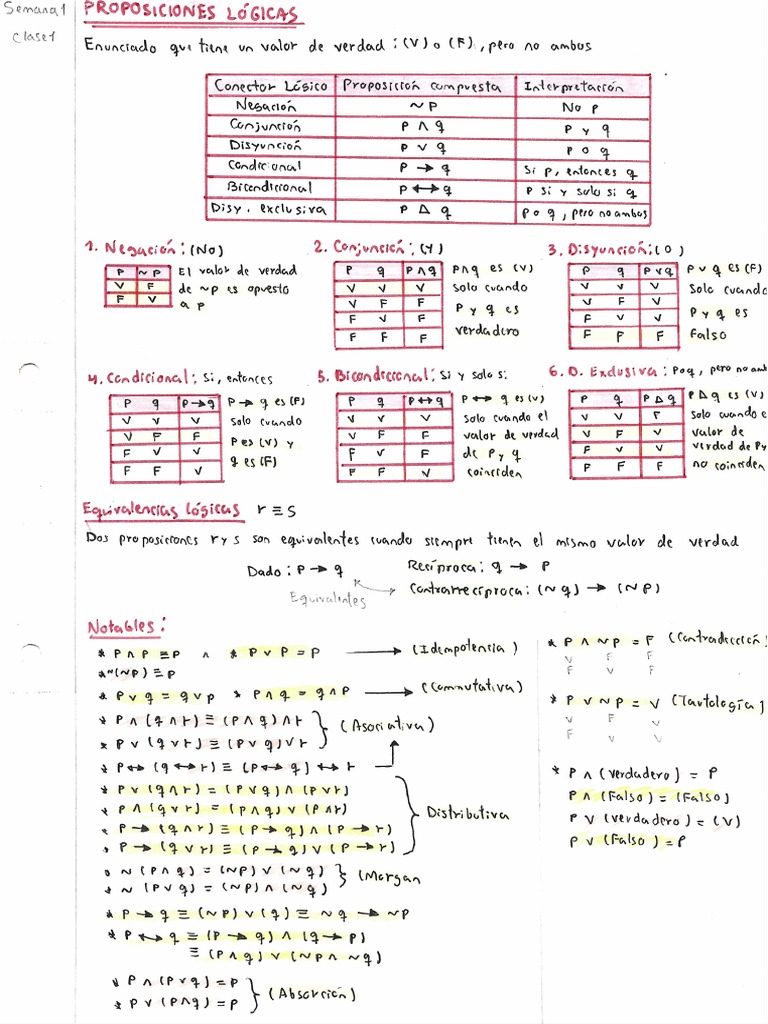 Semana 1
Clase 1
PROPOSICIONES LÓGICAS
Enunciado que tiene un valor de verdad : (V) o (F), pero no ambos
Conector Lógico | Proposición compuesta | Interpretación
Negación | ~P | No p
Conjunción | P ∧ q | P y q
Disyunción | P ∨ q | P o q
Condicional | P → q | Si p, entonces q
Bicondicional | P ↔ q | P si y solo si q
Disy. exclusiva | P Δ q | p o q, pero no ambos
1. Negación: (No)
P | ~P
V | F
F | V
El valor de verdad
de ~P es opuesto
a p
2. Conjunción: (Y)
P q | P∧q
V V | V
V F | F
F V | F
F F | F
P∧q es (V)
solo cuando
P y q es
verdadero
3. Disyunción: (O)
P q | P∨q
V V | V
V F | V
F V | V
F F | F
P∨q es (F)
solo cuando
P y q es
Falso
4. Condicional: Si, entonces
P q | P→q
V V | V
V F | F
F V | V
F F | V
P→q es (F)
solo cuando
P es (V) y
q es (F)
5. Bicondicional: Si y solo si
P q | P↔q
V V | V
V F | F
F V | F
F F | V
P↔q es (V)
solo cuando el
valor de verdad
de P y q
coinciden
6. D. Exclusiva: P o q, pero no amb
P q | P Δ q
V V | F
V F | V
F V | V
F F | F
P Δ q es (V)
solo cuando e
valor de
verdad de P y
no coinciden
Equivalencias lógicas r ≡ s
Dos proposiciones r y s son equivalentes cuando siempre tienen el mismo valor de verdad
Dado: P → q Recíproca: q → P
Equivalentes Contrarrecíproca: (~q) → (~P)
Notables:
* P∧P ≡ P ∧ * P∨P = P → (Idempotencia)
* ~(~P) ≡ P
* P∨q = q∨P * P∧q = q∧P → (Conmutativa)
* P∧(q∧r) ≡ (P∧q)∧r
* P∨(q∨r) ≡ (P∨q)∨r
(Asociativa)
* P↔(q↔r) ≡ (P↔q)↔r
* P∨(q∧r) = (P∨q)∧(P∨r)
* P∧(q∨r) = (P∧q)∨(P∧r)
* P→(q∧r) ≡ (P→q)∧(P→r)
* P→(q∨r) ≡ (P→q)∨(P→r)
Distributiva
* ~(P∧q) = (~P)∨(~q)
* ~(P∨q) = (~P)∧(~q)
(Morgan
* P→q ≡ (~P)∨(q) ≡ ~q → ~P
* P↔q ≡ (P→q)∧(q→P)
≡ (P∧q)∨(~P∧~q)
* P∧(P∨q) = P
* P∨(P∧q) = P
(Absorción)
* P∧~P = F (Contradicción)
V F F
F V F
* P∨~P = V (Tautología)
V F V
F V V
* P∧(Verdadero) = P
P∧(Falso) = (Falso)
P∨(Verdadero) = (V)
P∨(Falso) = P